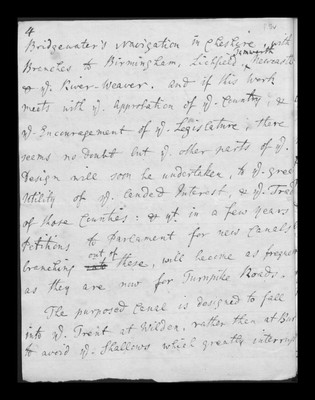 4
Bridgewater's Navigation in Cheshire, with
Branches to Birmingham, Lichfield, Tamworth, Newcastle
& yᵉ. River-Weaver. And if this Work
meets with yᵉ. Approbation of yᵉ. Country, &
yᵉ. Encouragement of yᵉ. Legislature, there
seems no doubt but yᵉ. other parts of yᵉ.
Design will soon be undertaken, to yᵉ. great
Utility of yᵉ. Landed Interest, & yᵉ. Trade
of those Counties: & yᵗ. in a few years
Petitions to Parliament for new Canals
branching out of these, will become as frequent
as they are now for Turnpike Roads.
The purposed Canal is designed to fall
into yᵉ. Trent at Wilden, rather than at Bur
to avoid yᵉ. Shallows which greatly interrupt